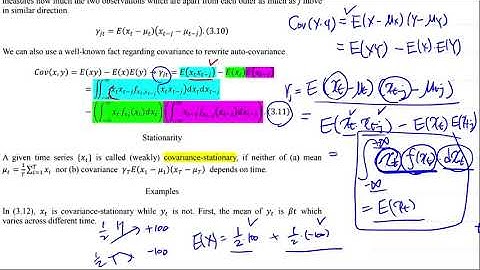 measures how much the two observations which are apart from each other as much as j move
in similar direction
γjt = E(xt − μt)(xt−j − μt−j). (3.10)
We can also use a well-known fact regarding covariance to rewrite auto-covariance
Cov(x, y) = E(xy) − E(x)E(y) → γjt = E(xtxt−j) − E(xt)E(xt−j)
(3.11)
Stationarity
A given time series {xt} is called (weakly) covariance-stationary, if neither of (a) mean
μt = 1/T ∑ xt nor (b) covariance γT E(xt − μ1)(xT − μT) depends on time.
Examples
In (3.12), xt is covariance-stationary while yt is not. First, the mean of yt is βt which
varies across different time.
Cov(x,y) = E(x − μx)(y − μy)
= E(xy) − E(x)·E(y)
γj = E(xt − μt)(xt−j − μt−j)
= E(xt·xt−j) − E(xt)E(xt−j)
= ∫ xt f(xt) dxt
−∞
= E(xt)
1/2 +100
1/2 −100
E(X) = 1/2 100 + 1/2 · (−100)